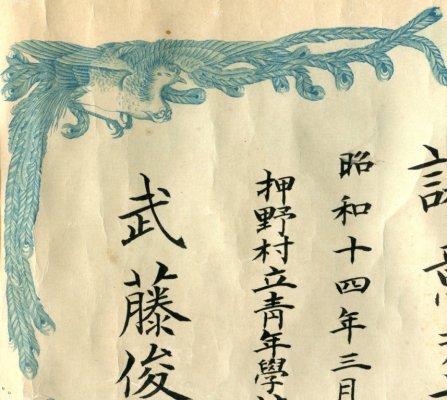 昭和十四年三月
押野村立青年學
武藤俊